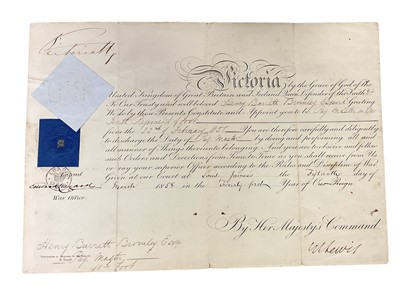 Victoria
Victoria by the Grace of God of the
United Kingdom of Great Britain and Ireland Queen Defender of the Faith &c
To Our Trusty and well beloved Henry Barrett Bromley Esquire Greeting
We do by these Presents Constitute and Appoint you to be Pay Master
Foot
from the February 1858 You are therefore carefully and diligently
to discharge the Duty of Pay Master by doing and performing all and
all manner of Things thereunto belonging And you are to observe and follow
such Orders and Directions from Time to Time as you shall receive from Us
or any your superior Officer according to the Rules and Discipline of War
Given at our Court at Saint James's the day of
March 1858 in the Year of Our Reign
War Office
By Her Majesty's Command
Henry Barrett Bromley Esqre
Pay Master
Foot